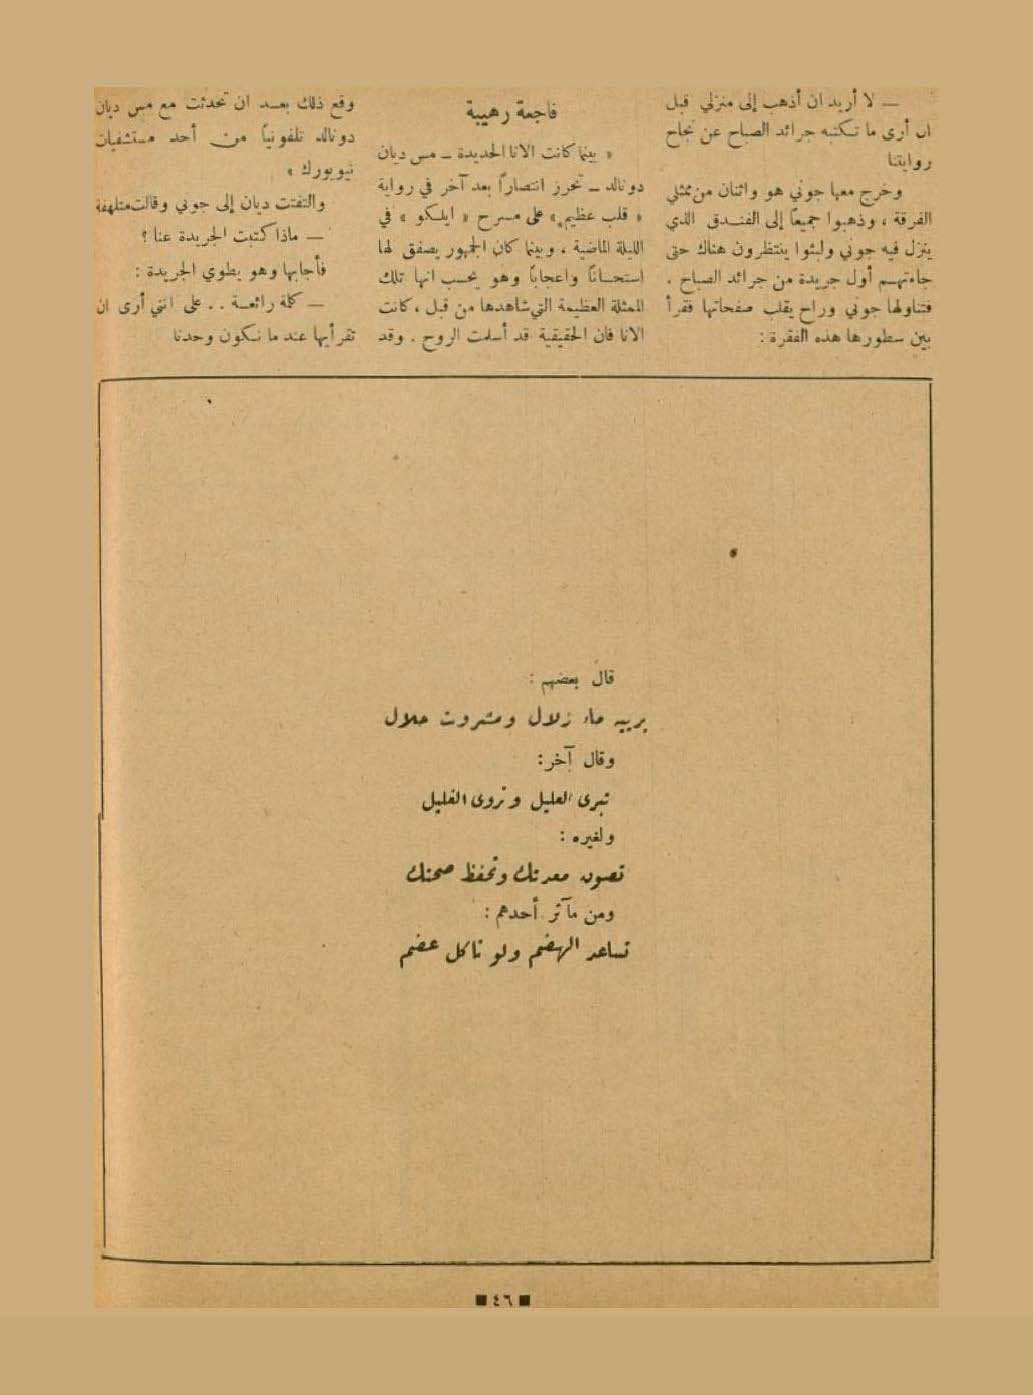 — لا أريد ان أذهب إلى منزلي قبل
ان أرى ما تكتبه جرائد الصباح عن نجاح
روايتنا
وخرج معها جوني هو واثنان من ممثلي
الفرقة ، وذهبوا جميعاً إلى الفندق الذي
ينزل فيه جوني ولبثوا ينتظرون هناك حتى
جاءتهم أول جريدة من جرائد الصباح .
فتناولها جوني وراح يقلب صفحاتها فقرأ
بين سطورها هذه الفقرة :
فاجعة رهيبة
« بينما كانت الانا الجديدة — مس ديان
دونالد — تحرز انتصاراً بعد آخر في رواية
« قلب عظيم » على مسرح « ايلكو » في
الليلة الماضية ، وبينما كان الجمهور يصفق لها
استحساناً واعجاباً وهو يحسب انها تلك
الممثلة العظيمة التي شاهدها من قبل ، كانت
الانا فان الحقيقية قد أسلمت الروح . وقد
وقع ذلك بعد ان تحدثت مع مس ديان
دونالد تلفونياً من أحد مستشفيات
نيويورك »
والتفتت ديان إلى جوني وقالت متلهفة
— ماذا كتبت الجريدة عنا ؟
فأجابها وهو يطوي الجريدة :
— كلة رائعة . . على انني أرى ان
تقرأيها عند ما نكون وحدنا
قال بعضهم :
بريه ماء زلال ومشروب حلال
وقال آخر :
تبرى العليل وتروى الغليل
ولغيره :
تصون معدتك وتحفظ صحتك
ومن مآثر أحدهم :
تساعد الهضم ولو تاكل عضم
■ ٤٦ ■